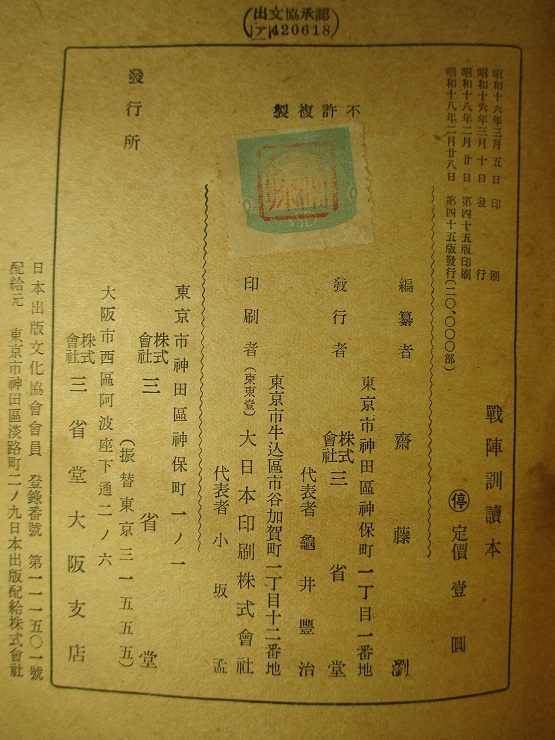 出文協承認
ア420618
昭和十六年三月五日印刷
昭和十六年三月十日發行
昭和十八年二月廿日第四十五版印刷
昭和十八年二月廿八日第四十五版發行(二〇、〇〇〇部)
戰陣訓讀本
停定價壹圓
不許複製
編纂者齋藤瀏
東京市神田區神保町一丁目一番地
發行者株式會社三省堂
代表者龜井豐治
東京市牛込區市谷加賀町一丁目十二番地
印刷者(東東壹)大日本印刷株式會社
代表者小坂孟
發行所
東京市神田區神保町一ノ一
株式會社三省堂
(振替東京三一五五五)
大阪市西區阿波座下通二ノ六
株式會社三省堂大阪支店
日本出版文化協會會員登錄番號第一一一五〇一號
配給元東京市神田區淡路町二ノ九日本出版配給株式會社